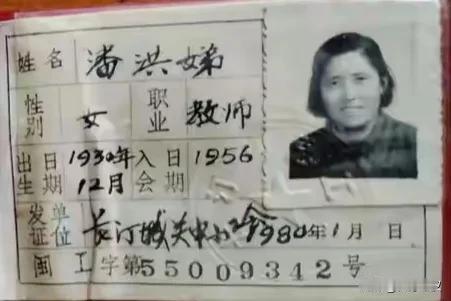 姓名 潘洪娣
性别 女 职业 教师
出生日期 1930年12月 入会日期 1956
发证单位 长汀城关中小 1980年1月 日
闽工字第55009342号